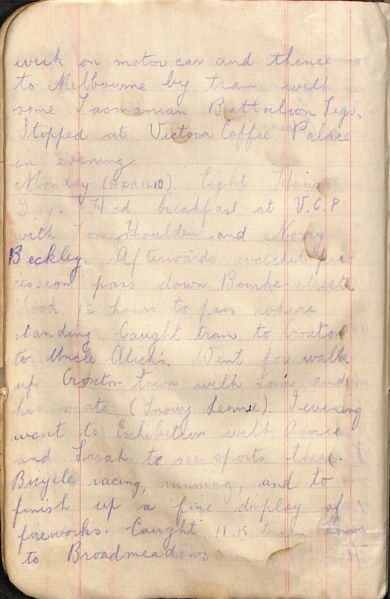 wick on motor car and thence
to Melbourne by tram with
some Tasmanian Battalion Sigs.
Stopped at Victoria Coffee Palace
in evening
Monday (APRIL 10). Eight Hour
Day. Had breakfast at V.C.P
with Tom Houlden and
Beckley. Afterwards watched pro-
cession pass down Bourke street
Took 2 hours to pass where
standing. Caught tram to Croxton
to Uncle Alick's. Went for walk
up Croxton town with and
his mate (Snowy Lennie). I evening
went to Exhibition with Annie
and Sarah to see sports there.
Bicycle racing, running, and to
finish up a fine display of
fireworks. Caught 11.15 train
to Broadmeadows